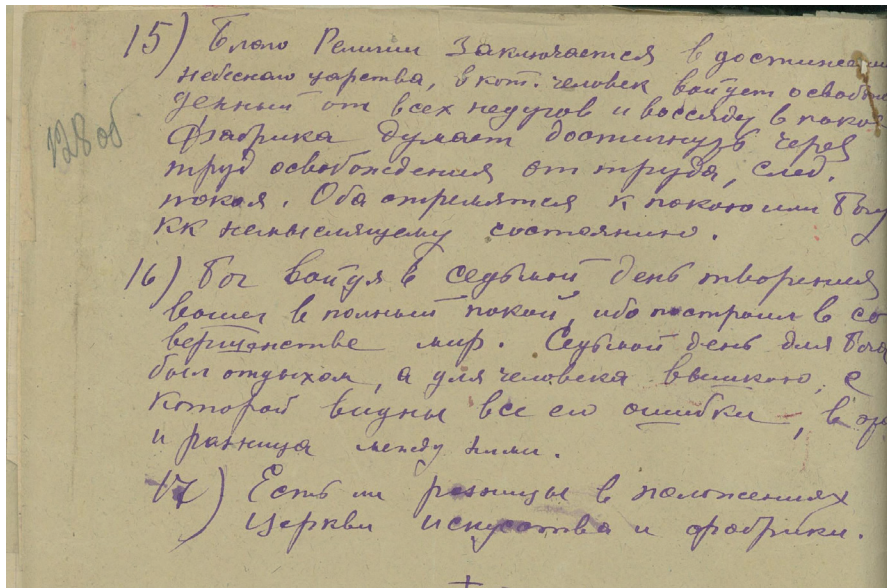 15) Благо Религии Заключается в достижении
небеснаго царства, в кот. человек войдет освобож
денный от всех недугов и воссяду в покое
128 об
Фабрика думает достигнуть через
труд освобождения от труда, след.
покоя. Оба стремятся к покою или Богу
кк немыслящему состоянию.
16) Бог войдя в седьмой день творения
вошел в полный покой, ибо построил в со
вершенстве мир. Седьмой день для Бога
был отдыхом, а для человека вышкою, с
которой видны все его ошибки, в
и разница между ними.
17) Есть ли разницы в положениях
Церкви искусства и фабрики.